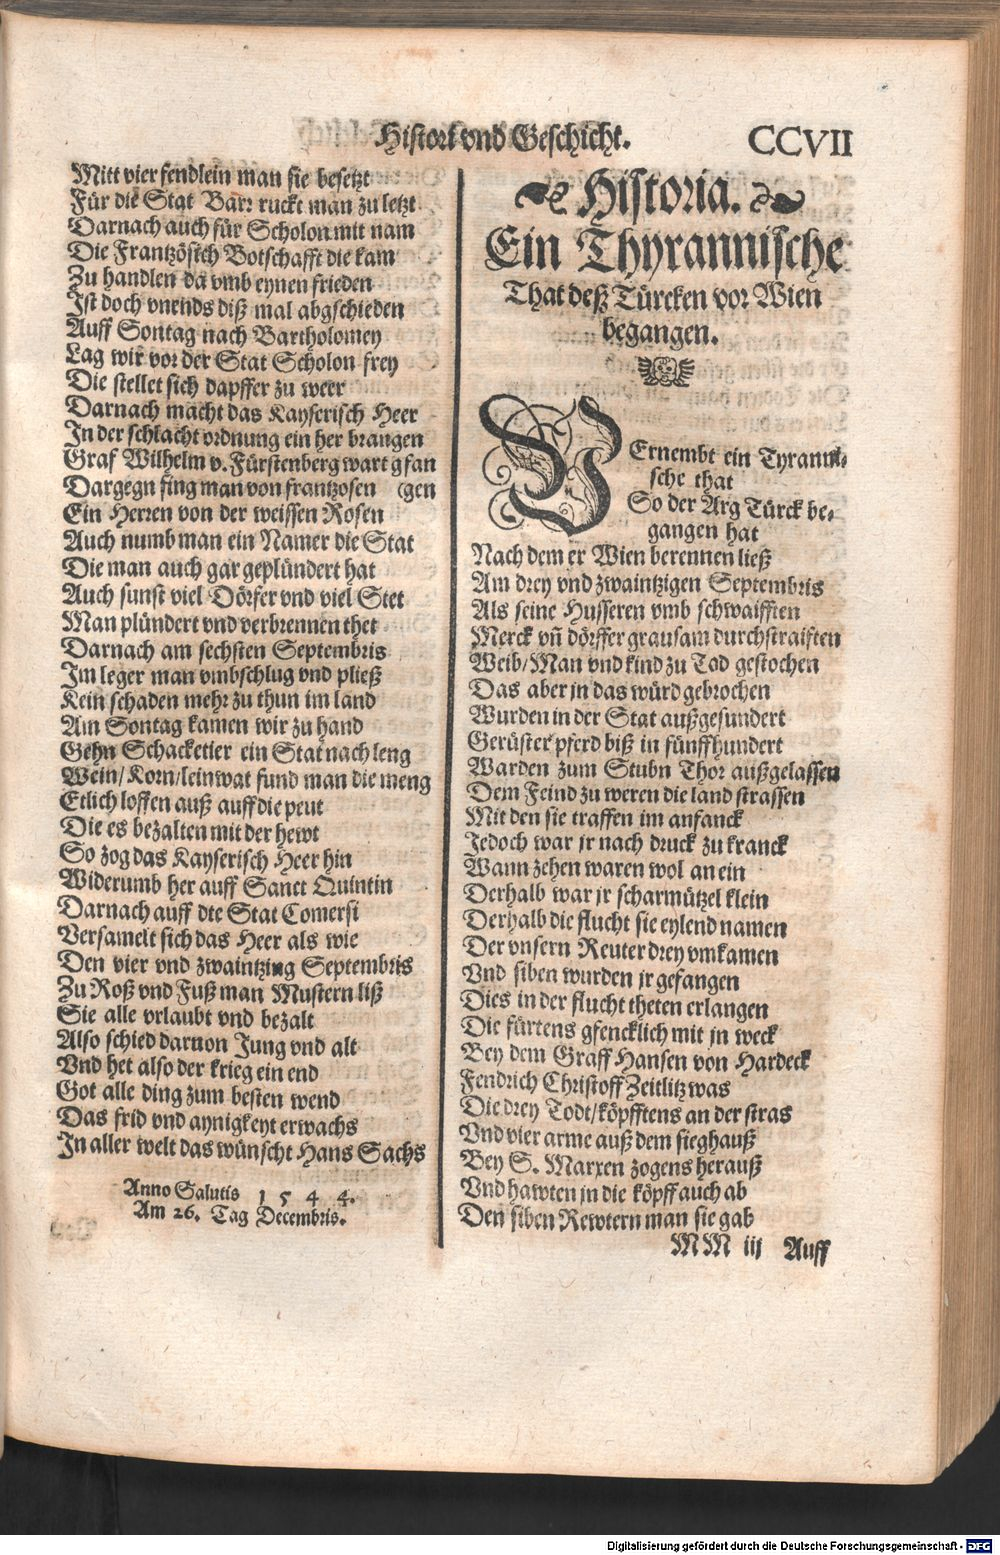 Histori vnd Geschicht. CCVII
Mitt vier fendlein man sie besetzt
Für die Stat Barr ruckt man zu letzt
Darnach auch für Scholon mit nam
Die Frantzösich Botschafft die kam
Zu handlen da vmb eynen frieden
Ist doch vnends diß mal abgschieden
Auff Sontag nach Bartholomey
Lag wir vor der Stat Scholon frey
Die stellet sich dapffer zu weer
Darnach macht das Kayserisch Heer
In der schlacht ordnung ein her brangen
Graf Wilhelm v. Fürstenberg wart gfan
Dargegn fing man von frantzosen (gen
Ein Herren von der weissen Rosen
Auch numb man ein Namer die Stat
Die man auch gar geplündert hat
Auch sunst viel Dörfer vnd viel Stet
Man plündert vnd verbrennen thet
Darnach am sechsten Septembris
Im leger man vmbschlug vnd pließ
Kein schaden mehr zu thun im land
Am Sontag kamen wir zu hand
Gehn Schacketier ein Stat nach leng
Wein/ Korn/ leinwat fund man die meng
Etlich loffen auß auff die peut
Die es bezalten mit der hewt
So zog das Kayserisch Heer hin
Widerumb her auff Sanct Quintin
Darnach auff dte Stat Comersi
Versamelt sich das Heer als wie
Den vier vnd zwaintzing Septembris
Zu Roß vnd Fuß man Mustern liß
Sie alle vrlaubt vnd bezalt
Also schied darnon Jung vnd alt
Vnd het also der krieg ein end
Got alle ding zum besten wend
Das frid vnd aynigkeyt erwachs
In aller welt das wünscht Hans Sachs
Anno Salutis 1 5 4 4.
Am 26. Tag Decembris.
Historia.
Ein Thyrannische
That deß Türcken vor Wien
begangen.
VErnembt ein Tyranni-
sche that
So der Arg Türck be-
gangen hat
Nach dem er Wien berennen ließ
Am drey vnd zwaintzigen Septembris
Als seine Husseren vmb schwaifften
Merck vn̄ dörffer grausam durchstraiften
Weib/ Man vnd kind zu Tod gestochen
Das aber jn das würd gebrochen
Wurden in der Stat außgesundert
Gerüster pferd biß in fünffhundert
Warden zum Stubn Thor außgelassen
Dem Feind zu weren die land strassen
Mit den sie traffen im anfanck
Jedoch war jr nach druck zu kranck
Wann zehen waren wol an ein
Derhalb war jr scharmützel klein
Derhalb die flucht sie eylend namen
Der vnsern Reuter drey vmkamen
Vnd siben wurden jr gefangen
Dies in der flucht theten erlangen
Die fürtens gfencklich mit jn weck
Bey dem Graff Hansen von Hardeck
Fendrich Christoff Zeitlitz was
Die drey Todt/ köpfftens an der stras
Vnd vier arme auß dem sieghauß
Bey S. Marxen zogens herauß
Vnd hawten jn die köpff auch ab
Den siben Rewtern man sie gab
MM iij Auff
Digitalisierung gefördert durch die Deutsche Forschungsgemeinschaft - DFG